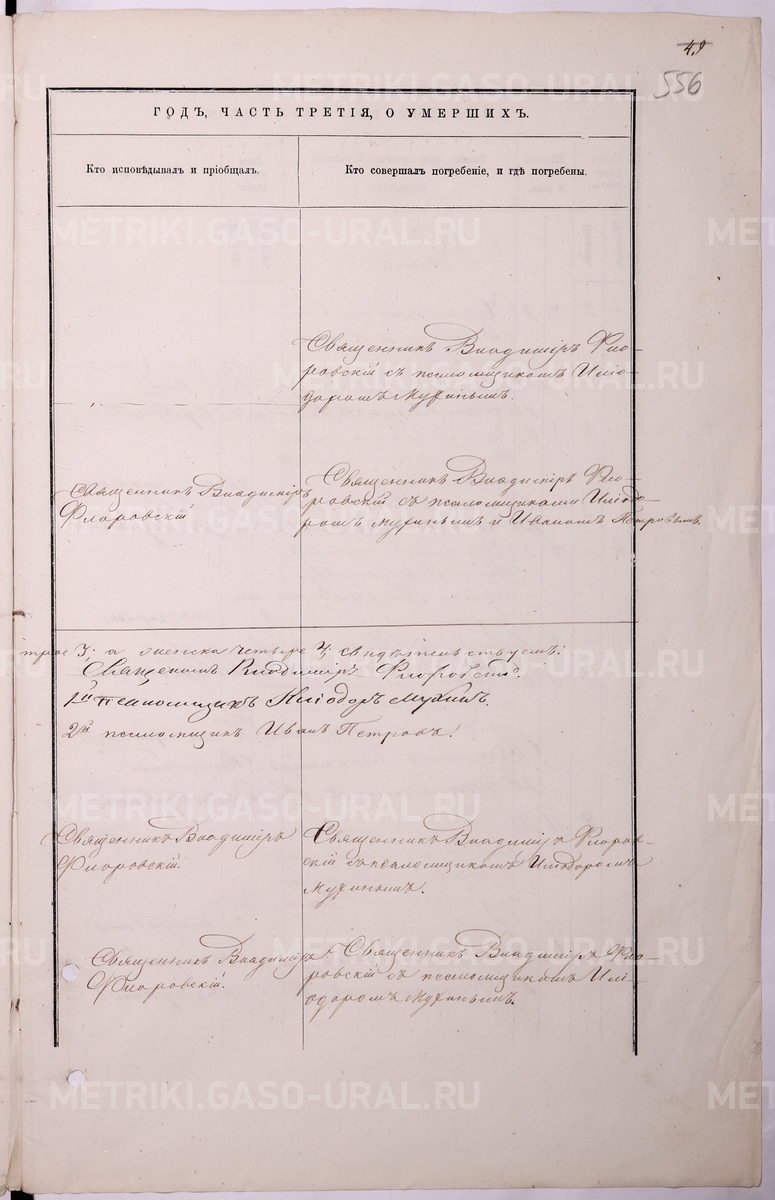 49
556
ГОДЪ, ЧАСТЬ ТРЕТІЯ, О УМЕРШИХЪ.
Кто исповѣдывалъ и пріобщалъ.
Кто совершалъ погребеніе, и гдѣ погребены.
Священникъ Владиміръ Фло-
ровскій съ псаломщикомъ Иліо-
доромъ Мухинымъ.
Священникъ Владиміръ
Флоровскій
Священникъ Владиміръ Фло-
ровскій съ псаломщиками Иліодо-
ромъ Мухинымъ и Иваномъ Петровымъ.
трое 3. а женска четыре 4; свидѣтельствуемъ:
Священникъ Владиміръ Флоровскій.
1й псаломщикъ Иліодоръ Мухинъ.
2й псаломщикъ Иванъ Петровъ.
Священникъ Владиміръ
Флоровскій.
Священникъ Владиміръ Флоров-
скій съ псаломщикомъ Иліодоромъ
Мухинымъ.
Священникъ Владиміръ
Флоровскій.
Священникъ Владиміръ Фло-
ровскій съ псаломщикомъ Илі-
одоромъ Мухинымъ.
METRIKI.GASO-URAL.RU